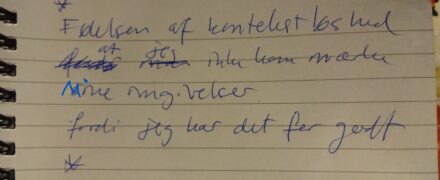 *
Følelsen af kontekstløshed
at jeg ikke kan mærke
Mine omgivelser
fordi jeg har det for godt
*